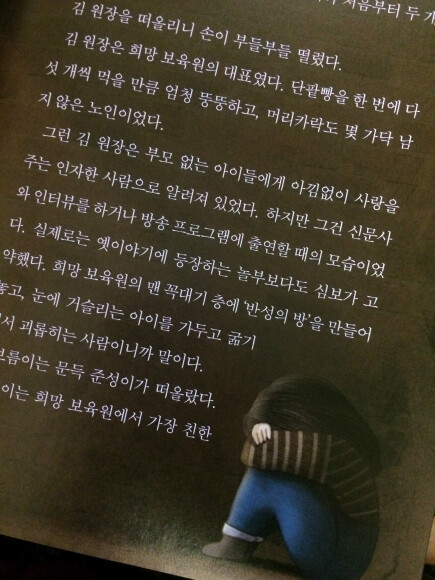 처음부터 두 개
김 원장을 떠올리니 손이 부들부들 떨렸다.
김 원장은 희망 보육원의 대표였다. 단팥빵을 한 번에 다
섯 개씩 먹을 만큼 엄청 뚱뚱하고, 머리카락도 몇 가닥 남
지 않은 노인이었다.
그런 김 원장은 부모 없는 아이들에게 아낌없이 사랑을
주는 인자한 사람으로 알려져 있었다. 하지만 그건 신문사
와 인터뷰를 하거나 방송 프로그램에 출연할 때의 모습이었
다. 실제로는 옛이야기에 등장하는 놀부보다도 심보가 고
약했다. 희망 보육원의 맨 꼭대기 층에 '반성의 방'을 만들어
놓고, 눈에 거슬리는 아이를 가두고 굶기
서 괴롭히는 사람이니까 말이다.
보름이는 문득 준성이가 떠올랐다.
이는 희망 보육원에서 가장 친한